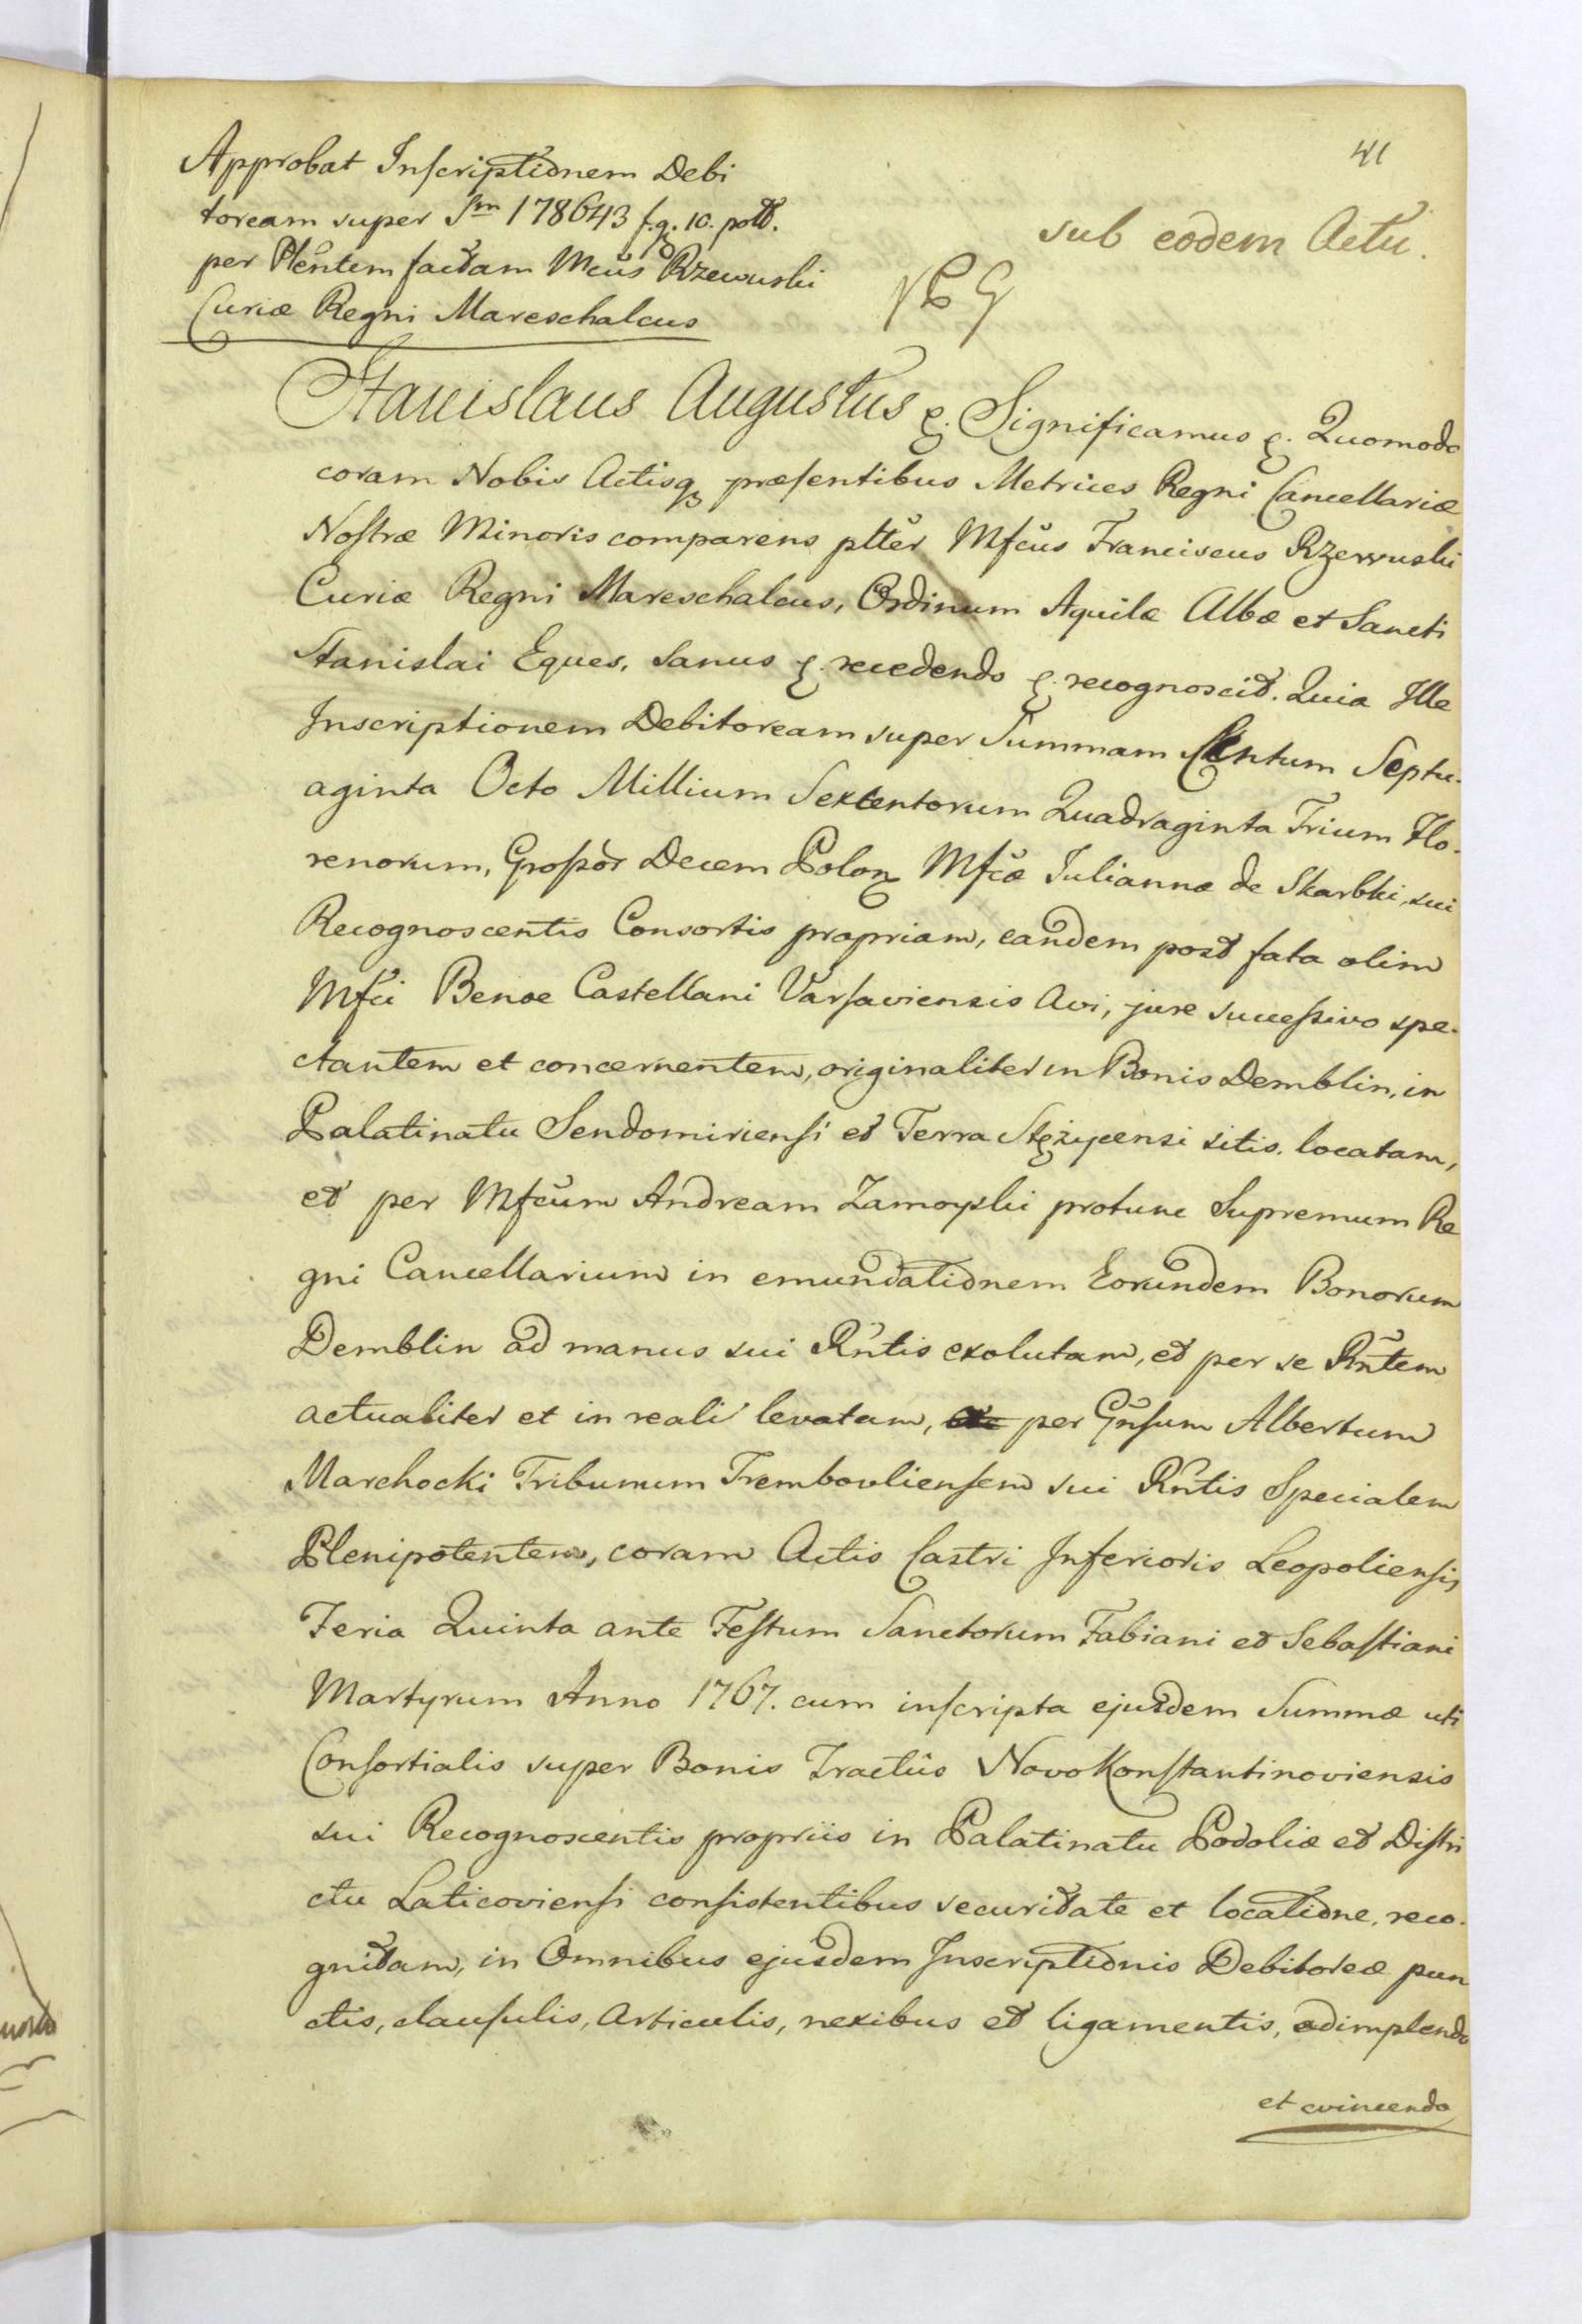 41
Approbat Inscriptionem Debi
toream super Sm 178643 f. g. 10. poltt.
per Plentem factam Mcus Rzewuski
Curiæ Regni Mareschalcus
sub eodem Actu.
Stanislaus Augustus &. Significamus &. Quomodo
coram Nobis Actisq præsentibus Metrices Regni Cancellariæ
Nostræ Minoris comparens pltter Mfcus Franciscus Rzewuski
Curiæ Regni Mareschalcus, Ordinum Aquilæ Albæ et Sancti
Stanislai Eques, Sanus &. recedendo &. recognoscit. Quia Ille
Inscriptionem Debitoream super Summam Centum Septu-
aginta Octo Millium Sexcentorum Quadraginta Trium Flo-
renorum, Grossor Decem Polon Mfcæ Juliannæ de Skarbki, sui
Recognoscentis Consortis propriam, eandem post fata olim
Mfci Benoe Castellani Varsaviensis Avi, jure successivo spe-
ctantem et concernentem, originaliter in Bonis Demblin, in
Palatinatu Sendomiriensi et Terra Stężycensi sitis, locatam,
et per Mfcum Andream Zamoyski protunc Supremum Re
gni Cancellarium in emundationem Eorundem Bonorum
Demblin ad manus sui Rntis exolutam, et per se Rntem
actualiter et in reali levatam, per Gnsum Albertum
Marchocki Tribunum Trembowliensem sui Rntis Specialem
Plenipotentem, coram Actis Castri Inferioris Leopoliensis
Feria Quinta ante Festum Sanctorum Fabiani et Sebastiani
Martyrum Anno 1767. cum inscripta ejusdem Summæ uti
Consortialis super Bonis Tractus NovoKonstantinoviensis
sui Recognoscentis propriis in Palatinatu Podoliæ et Distri
ctu Laticoviensi consistentibus securitate et locatione, reco-
gnitam, in Omnibus ejusdem Inscriptionis Debitoreæ pun
ctis, clausulis, Articulis, nexibus et ligamentis, adimplendo
et evincendo